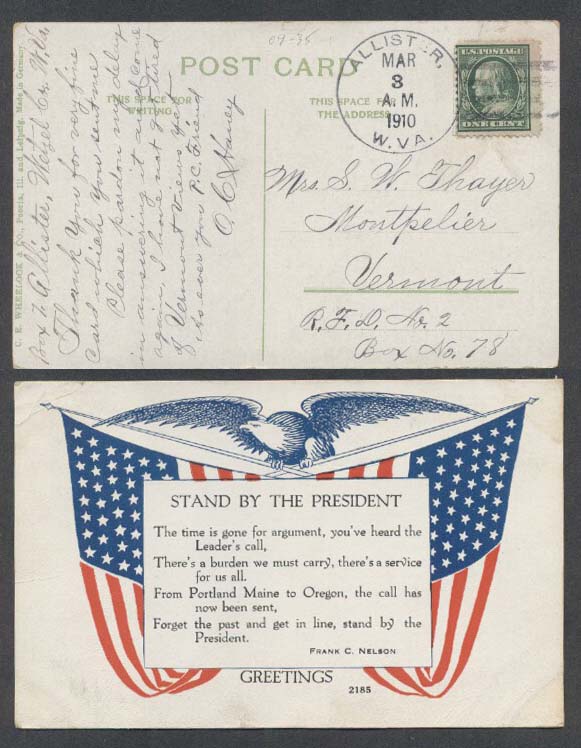 09-35
POST CARD
THIS SPACE FOR
WRITING
THIS SPACE FOR
THE ADDRESS
ALLISTER,
MAR
3
A.M.
1910
W. VA.
U.S. POSTAGE
ONE CENT
C. E. WHEELOCK & CO., Peoria, Ill. and Leipzig. Made in Germany.
Box 12 Allister, Wetzel Co. W. Va.
Thank You for very fine
card which you sent me
Please pardon my delay
in answering it and come
again. I have not got tired
of Vermont views yet
As ever you P.C. Friend
O. C. Haney
Mrs. S. W. Thayer
Montpelier
Vermont
R. F. D. No. 2
Box No. 78
STAND BY THE PRESIDENT
The time is gone for argument, you've heard the
Leader's call,
There's a burden we must carry, there's a service
for us all.
From Portland Maine to Oregon, the call has
now been sent,
Forget the past and get in line, stand by the
President.
FRANK C. NELSON
GREETINGS
2185